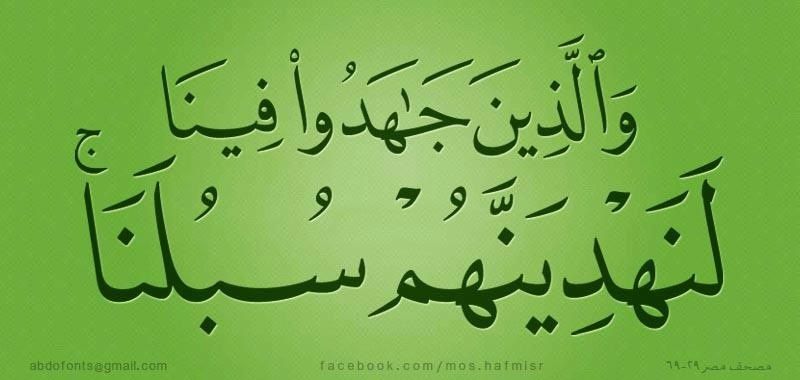 وَٱلَّذِينَ جَـٰهَدُوا۟ فِينَا
لَنَهْدِيَنَّهُمْ سُبُلَنَا ۚ
abdofonts@gmail.com
facebook.com/mos.hafmisr
مصحف مصر ٢٩-٦٩